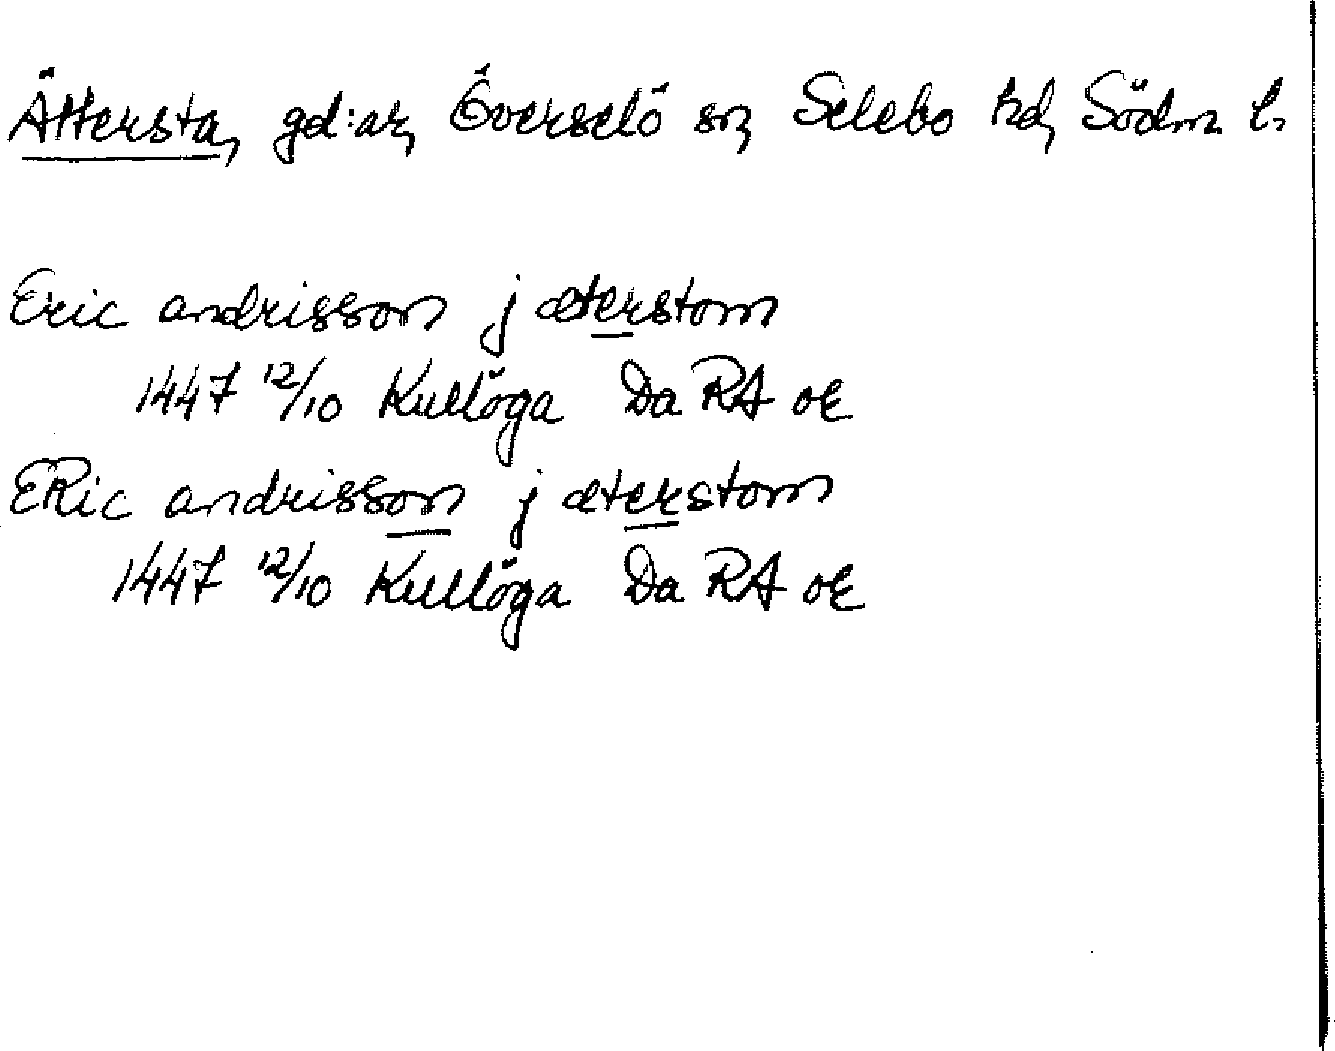 Ättersta, gd:ar, Överselö sn, Selebo hd, Södm. l.
Eric andrisson j æterstom
1447 12/10 Kullöga Da RA or
ERic andrisson j æterstom
1447 12/10 Kullöga Da RA or